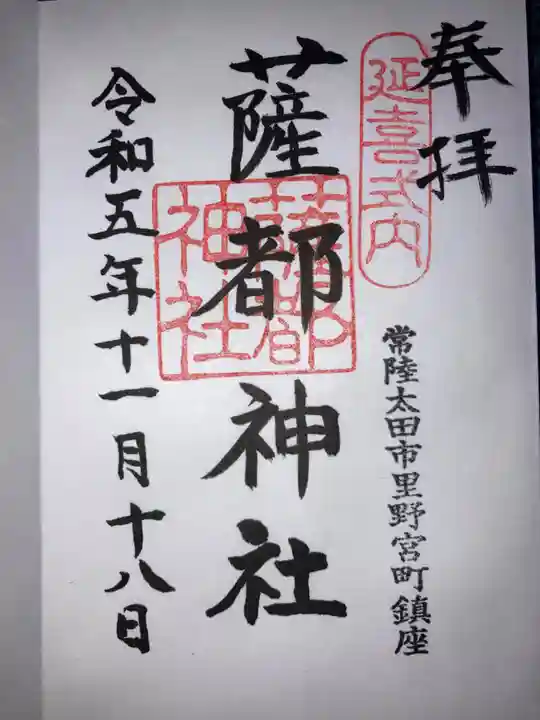 奉拝
延喜式内
常陸太田市里野宮町鎮座
薩都神社
薩都
神社
令和五年十一月十八日